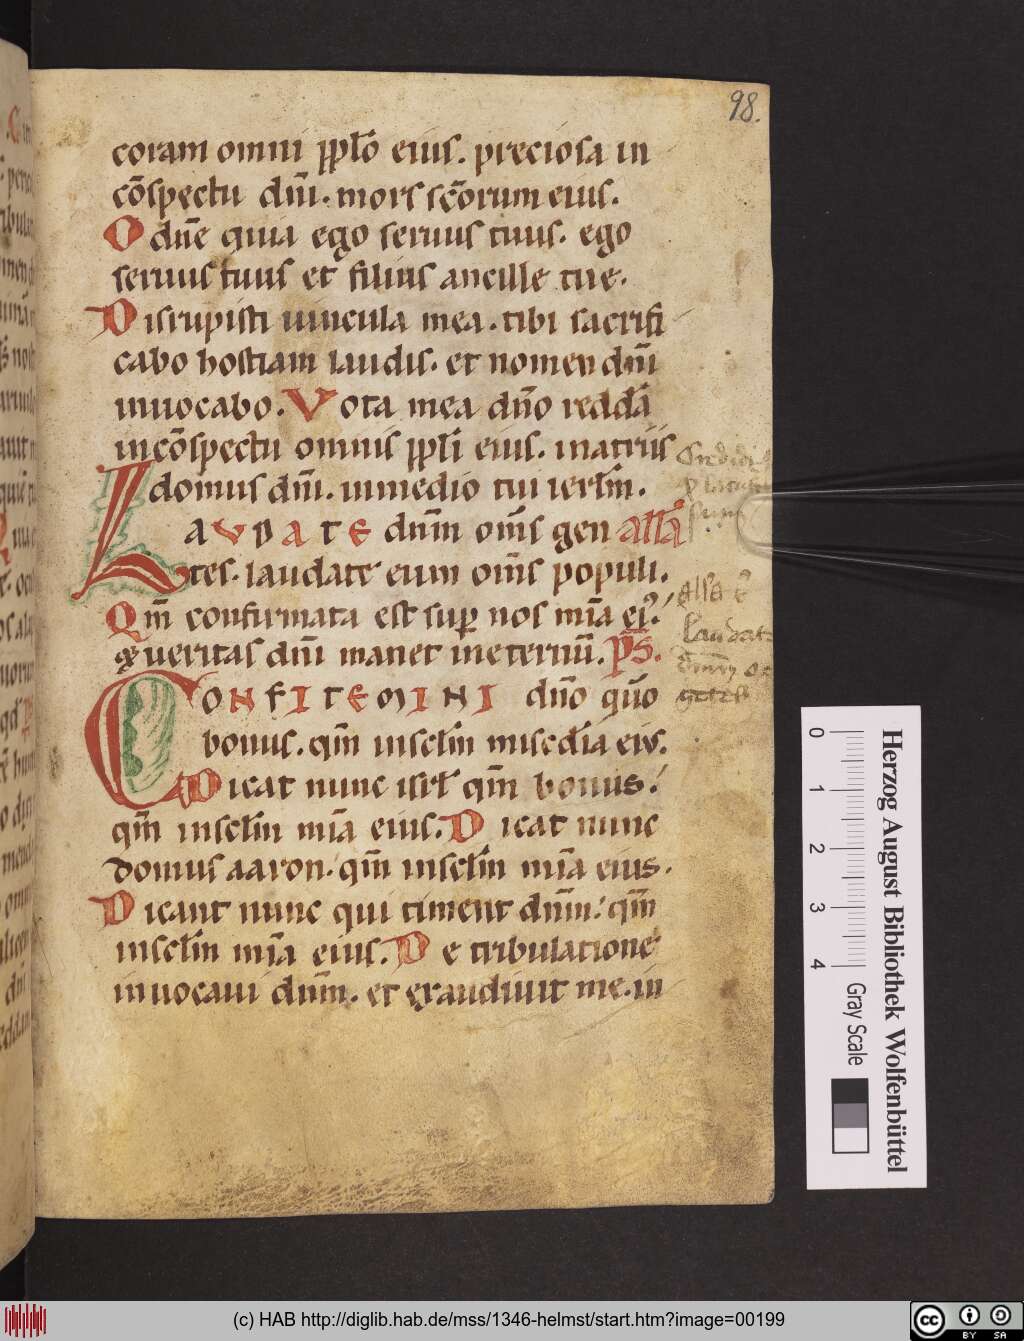 98.
coram omni ppło eius. preciosa in
cōspectu dñi. mors scōrum eius.
O dñe quia ego seruus tuus. ego
seruus tuus et filius ancille tue.
Disrupisti uincula mea. tibi sacrifi
cabo hostiam laudis. et nomen dñi
inuocabo. Vota mea dño reddā
in cōspectu omnis ppłi eius. in atriis
domus dñi. in medio tui ierłm.
LAVDATE dñm om̄s gen allā
tes. laudate eum om̄s populi.
Qm̄ confirmata est sup nos mīa ei᾿.
& ueritas dñi manet in eternū. PS.
CONFITEMINI dño qūo
bonus. qm̄ in scłm misedīa eius.
Dicat nunc isrł qm̄ bonus.
qm̄ in scłm mīa eius. Dicat nunc
domus aaron. qm̄ in scłm mīa eius.
Dicant nunc qui timent dñm. qm̄
in scłm mīa eius. De tribulatione
inuocaui dñm. et exaudiuit me. in
Laudate
0 1 2 3 4
Gray Scale
Herzog August Bibliothek Wolfenbüttel
(c) HAB http://diglib.hab.de/mss/1346-helmst/start.htm?image=00199
cc BY SA